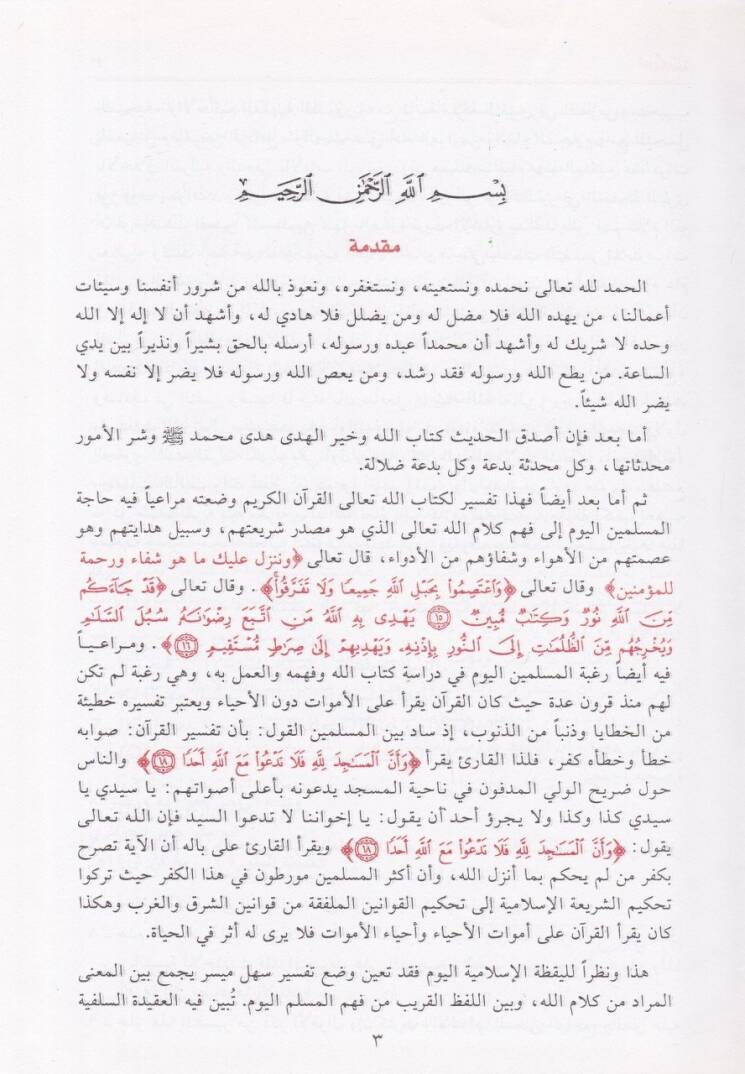 بِسْمِ اللَّهِ الرَّحْمَٰنِ الرَّحِيمِ
مقدمة
الحمد لله تعالى نحمده ونستعينه، ونستغفره، ونعوذ بالله من شرور أنفسنا وسيئات
أعمالنا، من يهده الله فلا مضل له ومن يضلل فلا هادي له، وأشهد أن لا إله إلا الله
وحده لا شريك له وأشهد أن محمداً عبده ورسوله، أرسله بالحق بشيراً ونذيراً بين يدي
الساعة. من يطع الله ورسوله فقد رشد، ومن يعص الله ورسوله فلا يضر إلا نفسه ولا
يضر الله شيئاً.
أما بعد فإن أصدق الحديث كتاب الله وخير الهدى هدى محمد ﷺ وشر الأمور
محدثاتها، وكل محدثة بدعة وكل بدعة ضلالة.
ثم أما بعد أيضاً فهذا تفسير لكتاب الله تعالى القرآن الكريم وضعته مراعياً فيه حاجة
المسلمين اليوم إلى فهم كلام الله تعالى الذي هو مصدر شريعتهم، وسبيل هدايتهم وهو
عصمتهم من الأهواء وشفاؤهم من الأدواء، قال تعالى ﴿وننزل عليك ما هو شفاء ورحمة
للمؤمنين﴾ وقال تعالى ﴿وَاعْتَصِمُوا بِحَبْلِ اللَّهِ جَمِيعًا وَلَا تَفَرَّقُوا﴾. وقال تعالى ﴿قَدْ جَاءَكُم
مِّنَ اللَّهِ نُورٌ وَكِتَابٌ مُّبِينٌ ١٥ يَهْدِى بِهِ اللَّهُ مَنِ اتَّبَعَ رِضْوَانَهُ سُبُلَ السَّلَامِ
وَيُخْرِجُهُم مِّنَ الظُّلُمَاتِ إِلَى النُّورِ بِإِذْنِهِ وَيَهْدِيهِمْ إِلَى صِرَاطٍ مُّسْتَقِيمٍ ١٦﴾. ومراعياً
فيه أيضاً رغبة المسلمين اليوم في دراسة كتاب الله وفهمه والعمل به، وهي رغبة لم تكن
لهم منذ قرون عدة حيث كان القرآن يقرأ على الأموات دون الأحياء ويعتبر تفسيره خطيئة
من الخطايا وذنباً من الذنوب، إذ ساد بين المسلمين القول: بأن تفسير القرآن: صوابه
خطأ وخطأه كفر، فلذا القارئ يقرأ ﴿وَأَنَّ الْمَسَاجِدَ لِلَّهِ فَلَا تَدْعُوا مَعَ اللَّهِ أَحَدًا ١٨﴾ والناس
حول ضريح الولي المدفون في ناحية المسجد يدعونه بأعلى أصواتهم: يا سيدي يا
سيدي كذا وكذا ولا يجرؤ أحد أن يقول: يا إخواننا لا تدعوا السيد فإن الله تعالى
يقول: ﴿وَأَنَّ الْمَسَاجِدَ لِلَّهِ فَلَا تَدْعُوا مَعَ اللَّهِ أَحَدًا ١٨﴾ ويقرأ القارئ على باله أن الآية تصرح
بكفر من لم يحكم بما أنزل الله، وأن أكثر المسلمين مورطون في هذا الكفر حيث تركوا
تحكيم الشريعة الإسلامية إلى تحكيم القوانين الملفقة من قوانين الشرق والغرب وهكذا
كان يقرأ القرآن على أموات الأحياء وأحياء الأموات فلا يرى له أثر في الحياة.
هذا ونظراً لليقظة الإسلامية اليوم فقد تعين وضع تفسير سهل ميسر يجمع بين المعنى
المراد من كلام الله، وبين اللفظ القريب من فهم المسلم اليوم. تُبين فيه العقيدة السلفية
٣